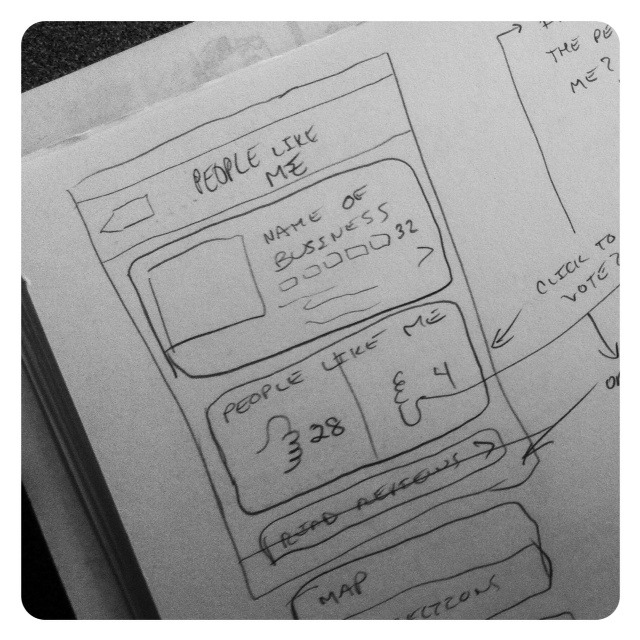 PEOPLE LIKE
ME
NAME OF
BUSINESS
32
PEOPLE LIKE ME
28
4
READ REVIEWS
MAP
THE PE
ME?
CLICK TO
VOTE?